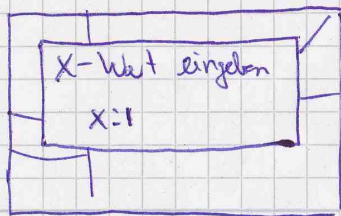 X-Wert eingeben
X=1